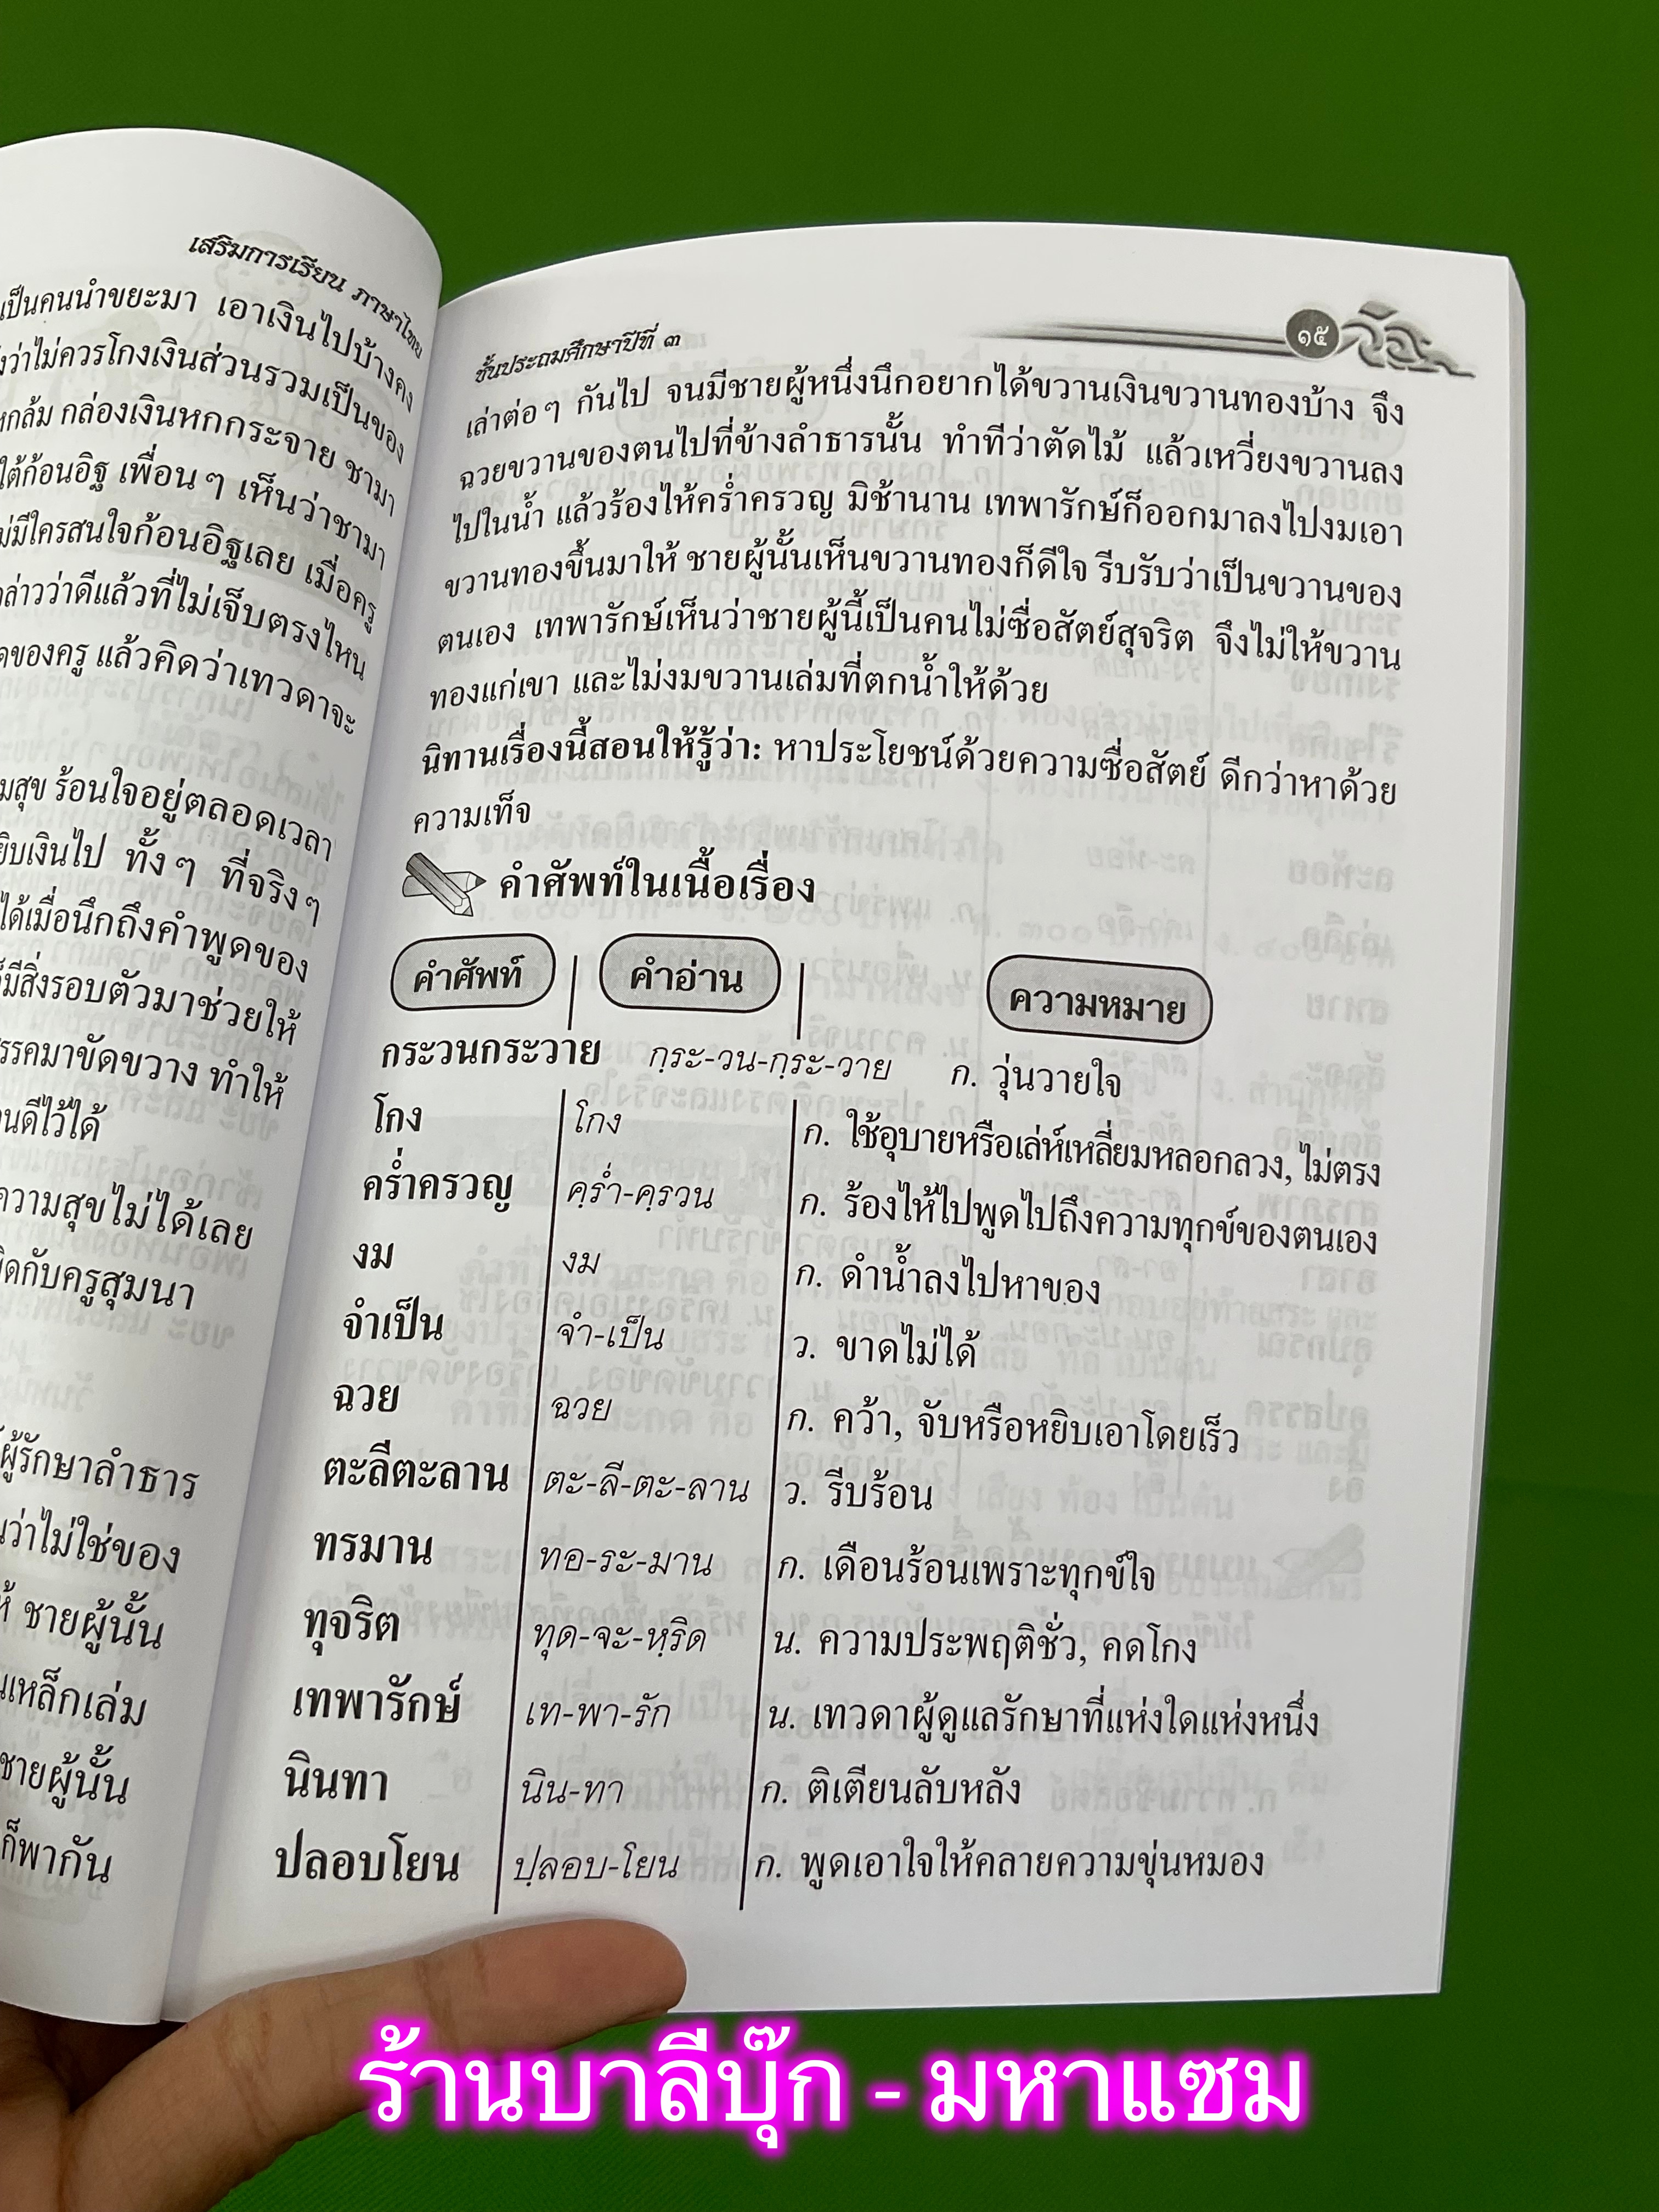 เสริมการเรียน ภาษาไทย
เป็นคนนำขยะมา เอาเงินไปบ้างคง
ว่าไม่ควรโกงเงินส่วนรวมเป็นของ
หกล้ม กล่องเงินหกกระจาย ชามา
ใต้ก้อนอิฐ เพื่อนๆ เห็นว่าชามา
ไม่มีใครสนใจก้อนอิฐเลย เมื่อครู
กล่าวว่าดีแล้วที่ไม่เจ็บตรงไหน
ของครู แล้วคิดว่าเทวดาจะ
สุข ร้อนใจอยู่ตลอดเวลา
หยิบเงินไป ทั้งๆ ที่จริงๆ
ได้เมื่อนึกถึงคำพูดของ
มีสิ่งรอบตัวมาช่วยให้
มาขัดขวาง ทำให้
ดีไว้ได้
ความสุขไม่ได้เลย
กับครูสุมนา
ผู้รักษาลำธาร
ว่าไม่ใช่ของ
ชายผู้นั้น
เหล็กเล่ม
ชายผู้นั้น
ก็พากัน
ชั้นประถมศึกษาปีที่ ๓
๑๕
เล่าต่อๆ กันไป จนมีชายผู้หนึ่งนึกอยากได้ขวานเงินขวานทองบ้าง จึง
ฉวยขวานของตนไปที่ข้างลำธารนั้น ทำทีว่าตัดไม้ แล้วเหวี่ยงขวานลง
ไปในน้ำ แล้วร้องไห้คร่ำครวญ มิช้านาน เทพารักษ์ก็ออกมาลงไปงมเอา
ขวานทองขึ้นมาให้ ชายผู้นั้นเห็นขวานทองก็ดีใจ รีบรับว่าเป็นขวานของ
ตนเอง เทพารักษ์เห็นว่าชายผู้นี้เป็นคนไม่ซื่อสัตย์สุจริต จึงไม่ให้ขวาน
ทองแก่เขา และไม่งมขวานเล่มที่ตกน้ำให้ด้วย
นิทานเรื่องนี้สอนให้รู้ว่า: หาประโยชน์ด้วยความซื่อสัตย์ ดีกว่าหาด้วย
ความเท็จ
คำศัพท์ในเนื้อเรื่อง
คำศัพท์ คำอ่าน ความหมาย
กระวนกระวาย กฺระ-วน-กฺระ-วาย ก. วุ่นวายใจ
โกง โกง ก. ใช้อุบายหรือเล่ห์เหลี่ยมหลอกลวง, ไม่ตรง
คร่ำครวญ คฺร่ำ-คฺรวน ก. ร้องไห้ไปพูดไปถึงความทุกข์ของตนเอง
งม งม ก. ดำน้ำลงไปหาของ
จำเป็น จำ-เป็น ว. ขาดไม่ได้
ฉวย ฉวย ก. คว้า, จับหรือหยิบเอาโดยเร็ว
ตะลีตะลาน ตะ-ลี-ตะ-ลาน ว. รีบร้อน
ทรมาน ทอ-ระ-มาน ก. เดือนร้อนเพราะทุกข์ใจ
ทุจริต ทุด-จะ-หฺริด น. ความประพฤติชั่ว, คดโกง
เทพารักษ์ เท-พา-รัก น. เทวดาผู้ดูแลรักษาที่แห่งใดแห่งหนึ่ง
นินทา นิน-ทา ก. ติเตียนลับหลัง
ปลอบโยน ปฺลอบ-โยน ก. พูดเอาใจให้คลายความขุ่นหมอง
ร้านบาลีบุ๊ก - มหาแซม